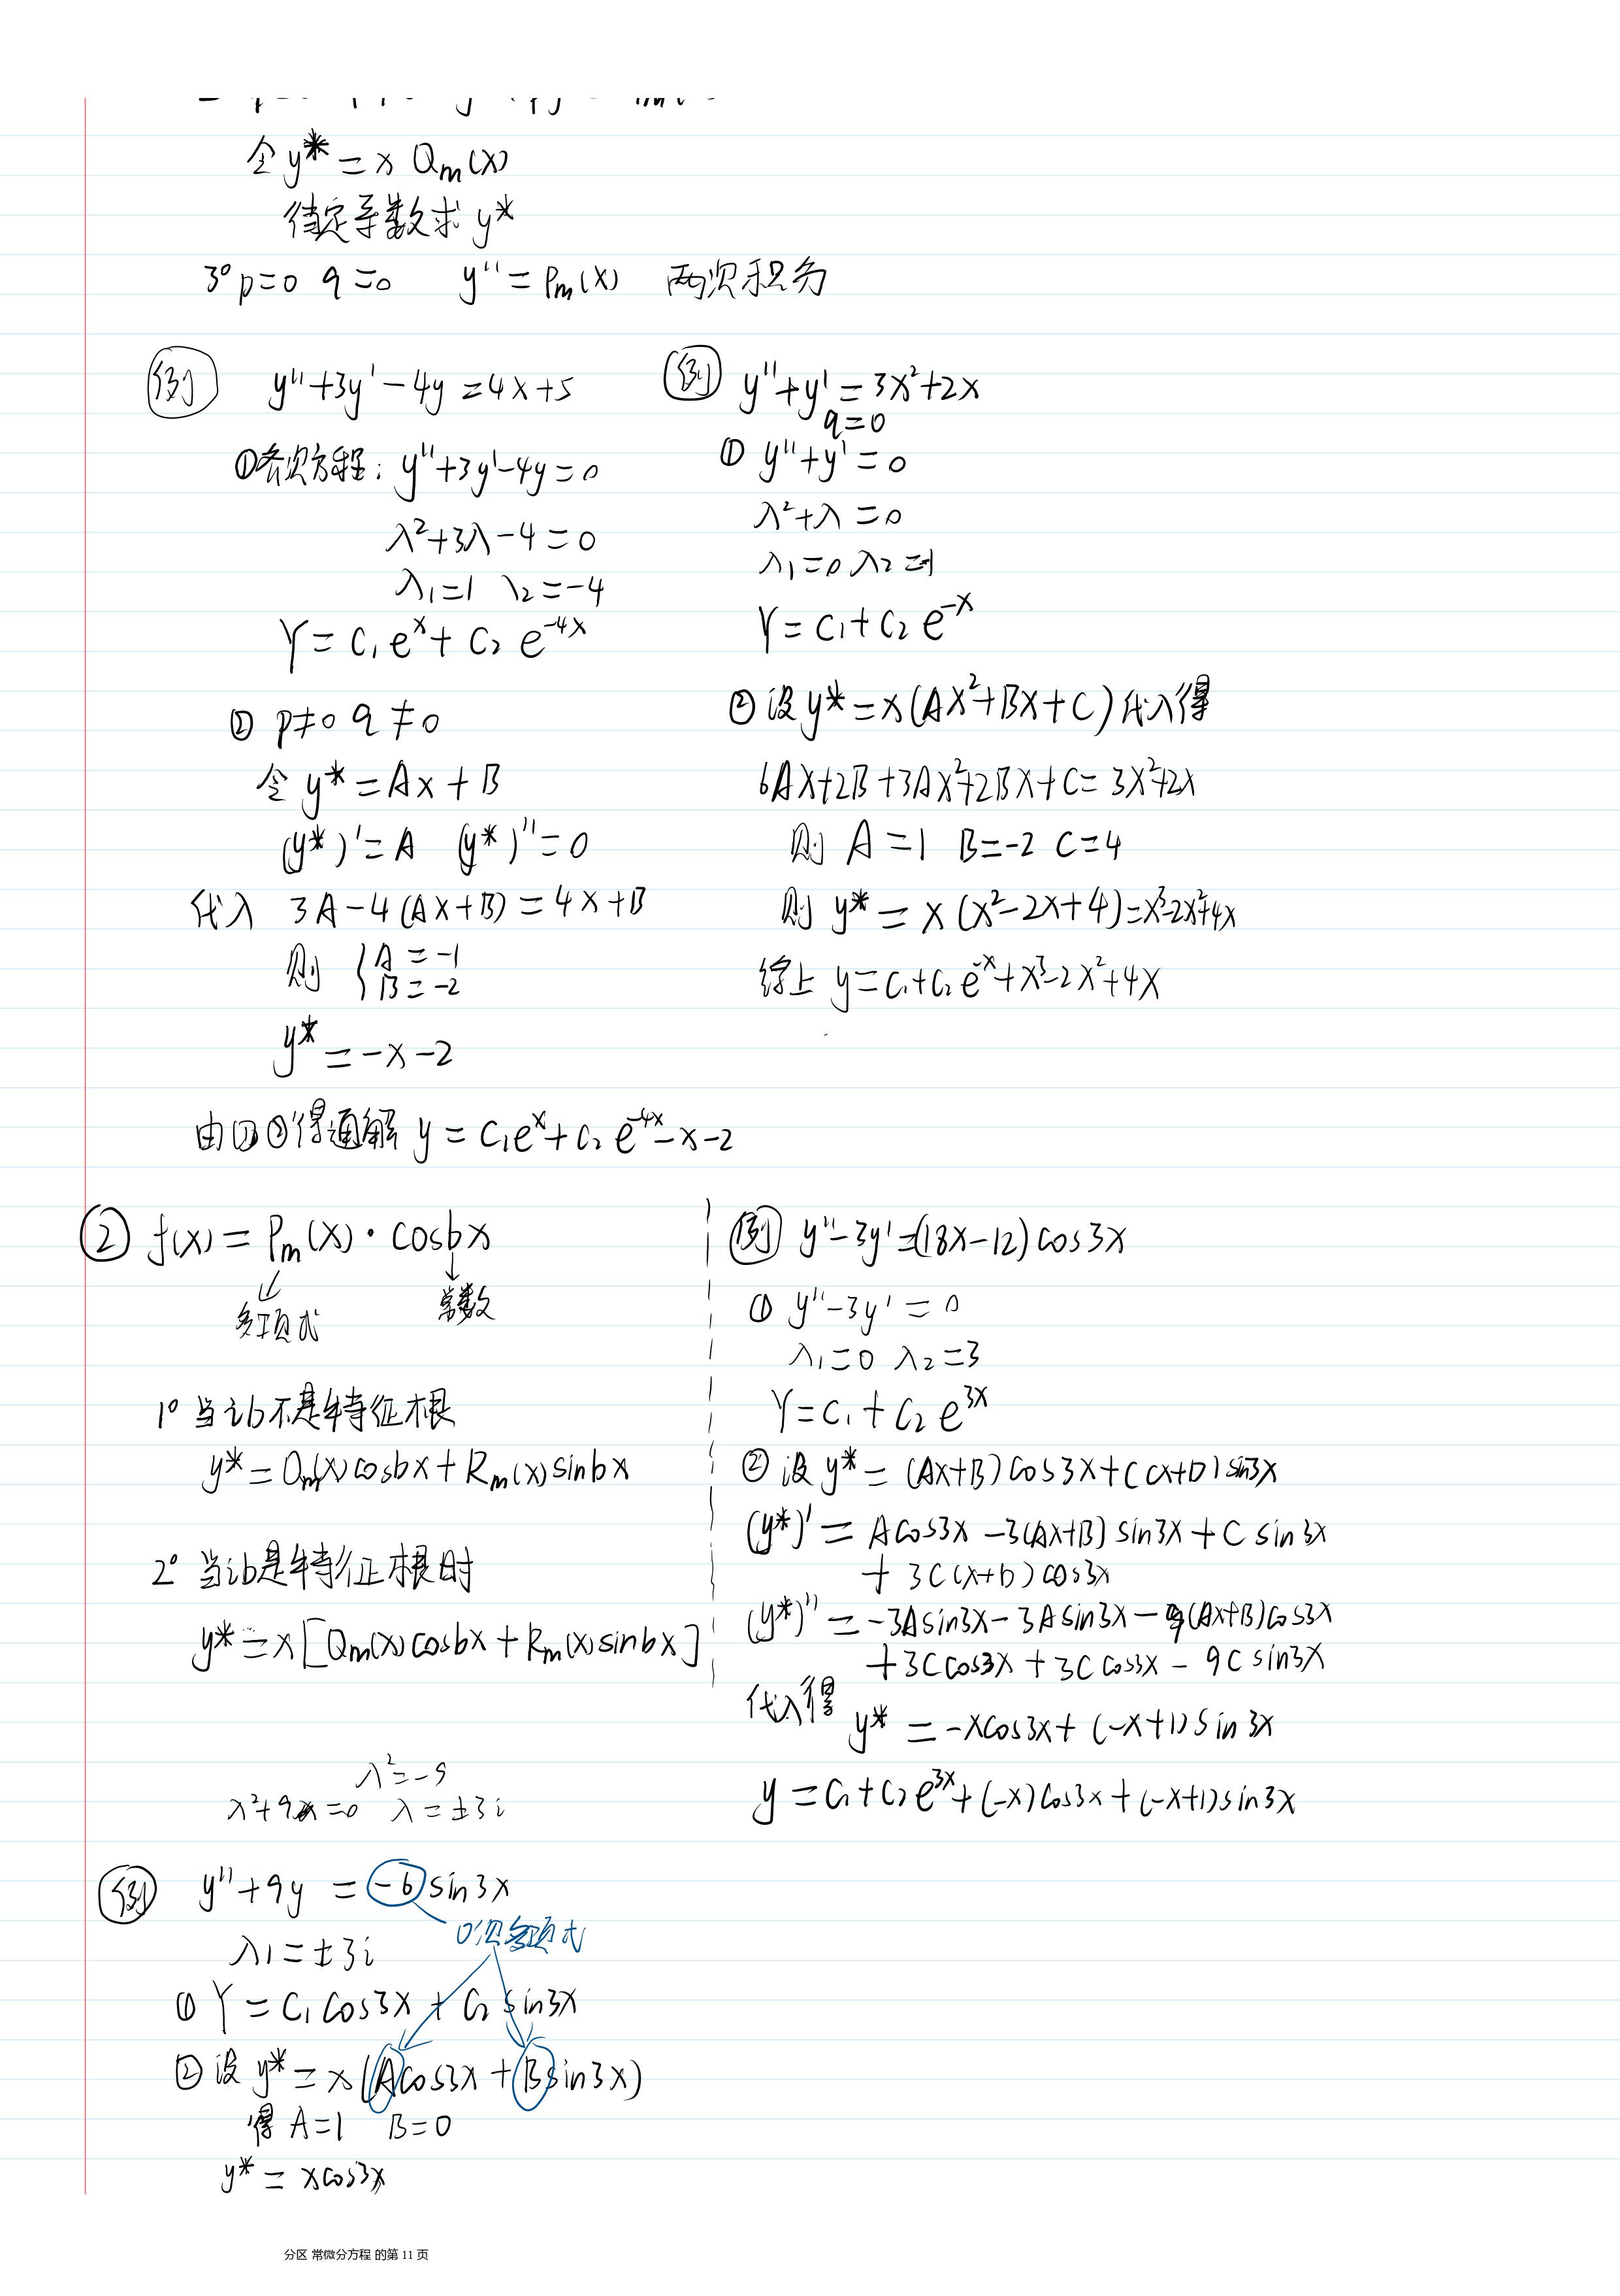 令 y* = x Qm(x)
待定系数求 y*
3° p=0 q=0 y'' = Pm(x) 两次积分
例 y''+3y'-4y=4x+5
①齐次方程: y''+3y'-4y=0
λ²+3λ-4=0
λ₁=1 λ₂=-4
Y=C₁e^x+C₂e^{-4x}
② p≠0 q≠0
令 y*=Ax+B
(y*)'=A (y*)''=0
代入 3A-4(Ax+B)=4x+B
则 { A=-1
B=-2
y*=-x-2
由①②得通解 y=C₁e^x+C₂e^{-4x}-x-2
例 y''+y'=3x²+2x
q=0
① y''+y'=0
λ²+λ=0
λ₁=0 λ₂=-1
Y=C₁+C₂e^{-x}
② 设 y*=x(Ax²+Bx+C) 代入得
6Ax+2B+3Ax²+2Bx+C=3x²+2x
则 A=1 B=-2 C=4
则 y*=x(x²-2x+4)=x³-2x²+4x
综上 y=C₁+C₂e^{-x}+x³-2x²+4x
② f(x)=Pm(x)·cosbx
多项式 常数
1° 当ib不是特征根
y*=Qm(x)cosbx+Rm(x)sinbx
2° 当ib是特征根时
y*=x[Qm(x)cosbx+Rm(x)sinbx]
例 y''-3y'=(18x-12)cos3x
① y''-3y'=0
λ₁=0 λ₂=3
Y=C₁+C₂e^{3x}
② 设 y*=(Ax+B)cos3x+C(x+D)sin3x
(y*)'=Acos3x-3(Ax+B)sin3x+Csin3x
+3C(x+D)cos3x
(y*)''=-3Asin3x-3Asin3x-9(Ax+B)cos3x
+3Ccos3x+3Ccos3x-9Csin3x
代入得
y*=-xcos3x+(-x+1)sin3x
y=C₁+C₂e^{3x}+(-x)cos3x+(-x+1)sin3x
λ²=-9
λ²+9=0 λ=±3i
例 y''+9y=-6sin3x
0次多项式
λ₁=±3i
① Y=C₁cos3x+C₂sin3x
② 设 y*=x(Acos3x+Bsin3x)
得 A=1 B=0
y*=xcos3x
分区 常微分方程 的第 11 页